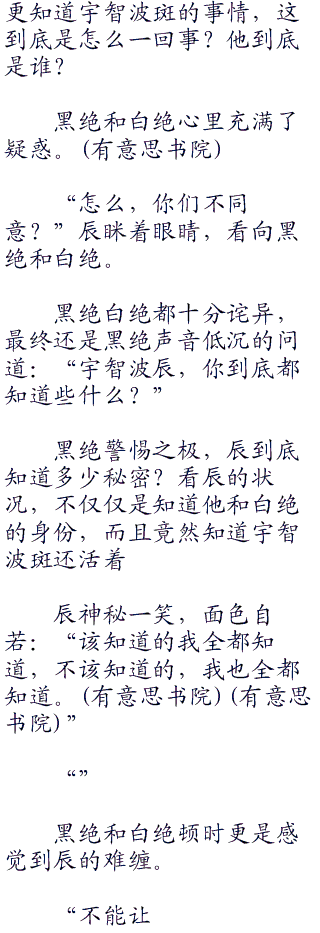 更知道宇智波斑的事情，这
到底是怎么一回事？他到底
是谁？
黑绝和白绝心里充满了
疑惑。(有意思书院)
“怎么，你们不同
意？”辰眯着眼睛，看向黑
绝和白绝。
黑绝白绝都十分诧异，
最终还是黑绝声音低沉的问
道：“宇智波辰，你到底都
知道些什么？”
黑绝警惕之极，辰到底
知道多少秘密？看辰的状
况，不仅仅是知道他和白绝
的身份，而且竟然知道宇智
波斑还活着
辰神秘一笑，面色自
若：“该知道的我全都知
道，不该知道的，我也全都
知道。(有意思书院)(有意思
书院)”
“”
黑绝和白绝顿时更是感
觉到辰的难缠。
“不能让